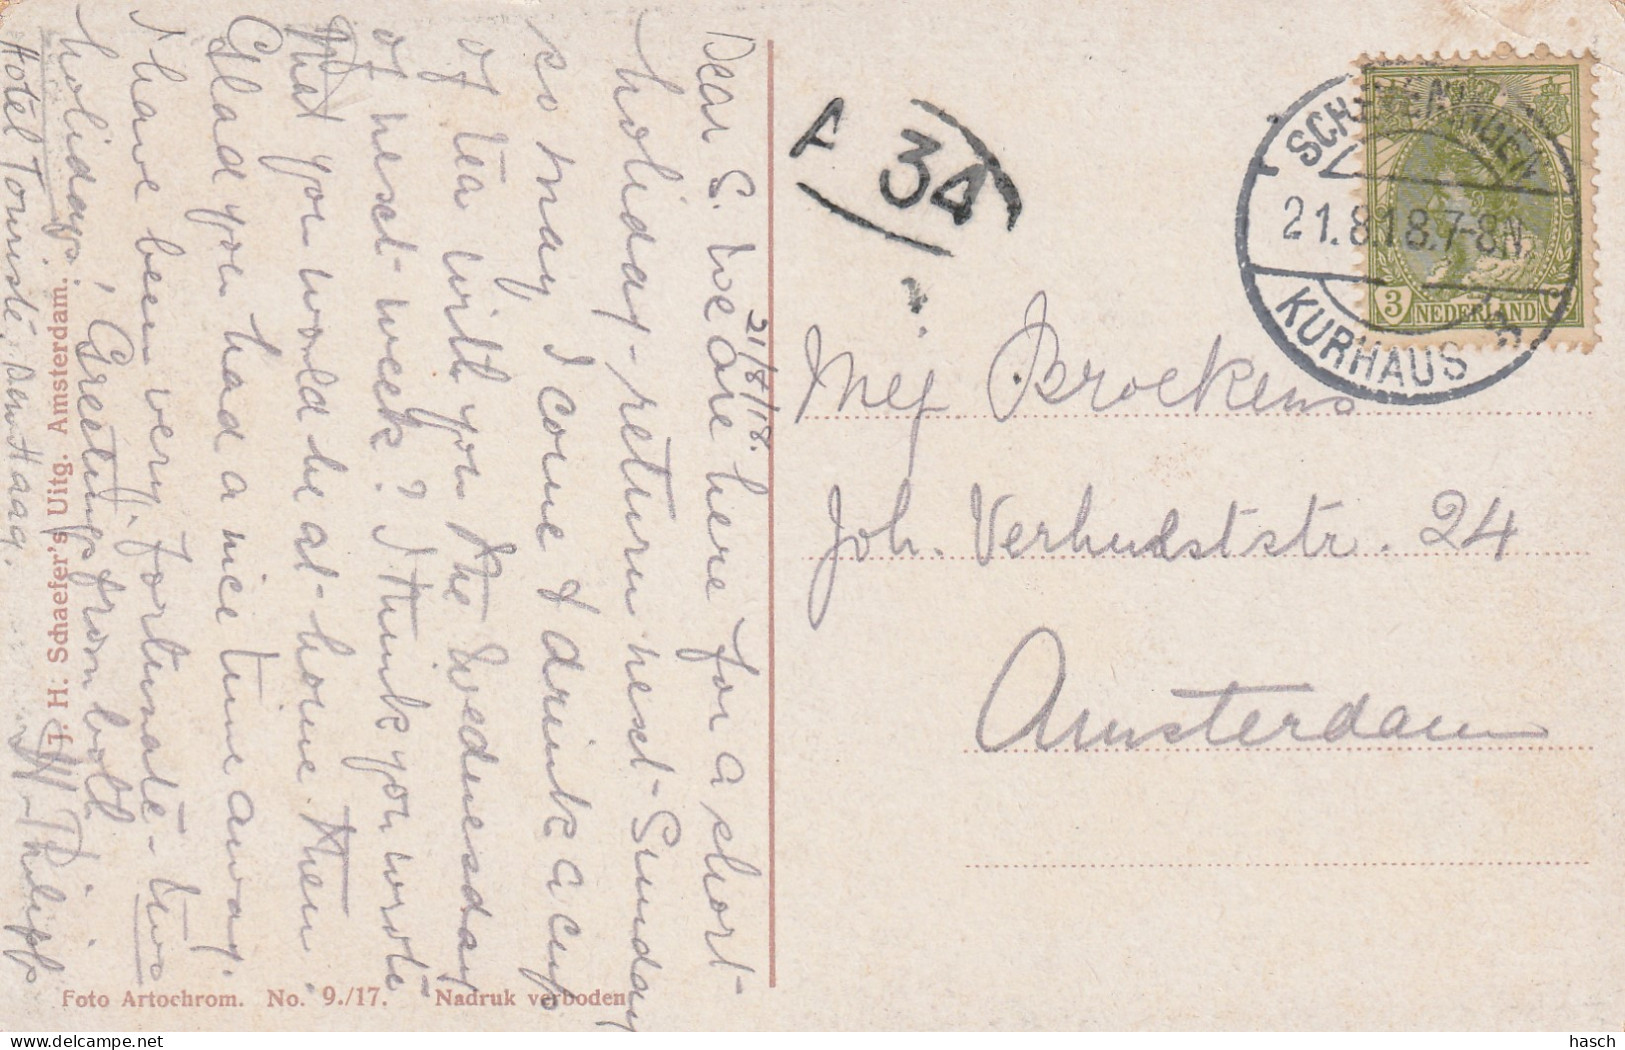 21/8/18.
Dear S. We are here for a short
holiday - return next Sunday
so may I come & drink a cup
of tea with you the Wednesday
of next week? I think you wrote
that you would be at home then.
Glad you had a nice time away.
I have been very fortunate - two
holidays! Greetings from both
Hotel Touriste, Den Haag.
Philipp
J. H. Schaefer's Uitg. Amsterdam.
Foto Artochrom. No. 9./17. Nadruk verboden
A 34
SCHEVENINGEN
21.8.18.7-8N
KURHAUS
3 NEDERLAND
Mej Broekens
Joh. Verhulststr. 24
Amsterdam
hasch